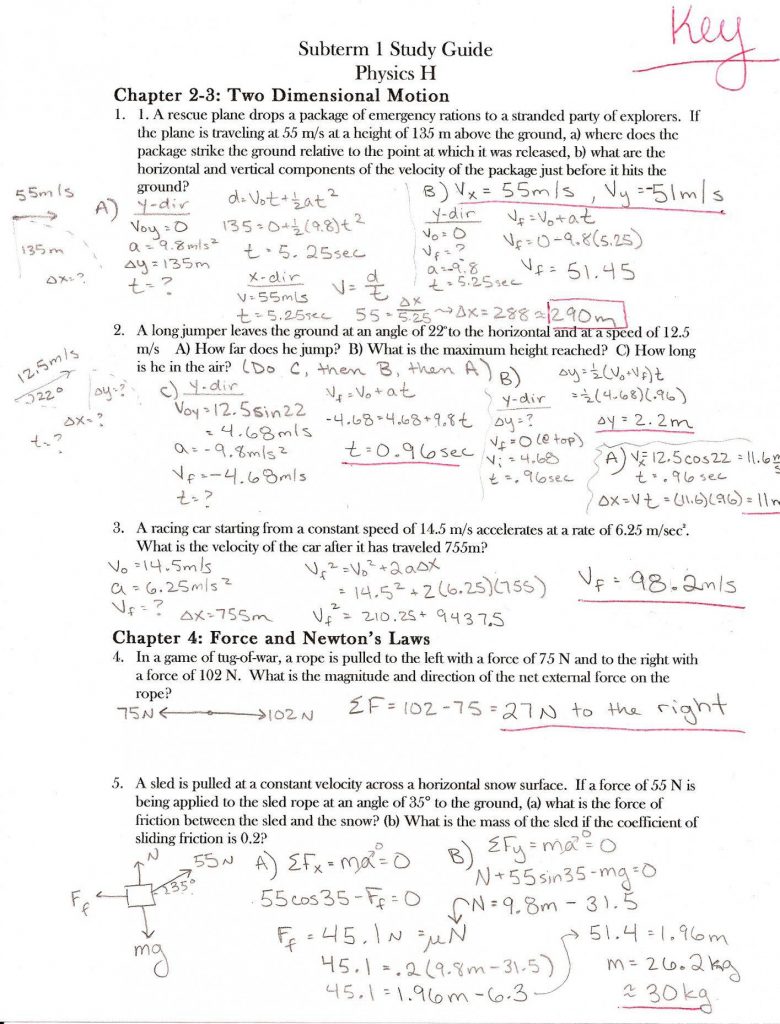 Key
Subterm 1 Study Guide
Physics H
Chapter 2-3: Two Dimensional Motion
1. 1. A rescue plane drops a package of emergency rations to a stranded party of explorers. If
the plane is traveling at 55 m/s at a height of 135 m above the ground, a) where does the
package strike the ground relative to the point at which it was released, b) what are the
horizontal and vertical components of the velocity of the package just before it hits the
ground?
55m/s
135m
Δx=?
A)
y-dir
Voy=0
a=9.8m/s²
Δy=135m
t=?
d=Vot+½at²
135=0+½(9.8)t²
t=5.25sec
x-dir
V=55m/s
t=5.25sec
V=d/t
55=Δx/5.25→Δx=288≈290m
B) Vx=55m/s, Vy=-51m/s
y-dir
Vo=0
Vf=?
a=-9.8
t=5.25sec
Vf=Vo+at
Vf=0-9.8(5.25)
Vf=51.45
2. A long jumper leaves the ground at an angle of 22° to the horizontal and at a speed of 12.5
m/s A) How far does he jump? B) What is the maximum height reached? C) How long
is he in the air? (Do C, then B, then A)
12.5m/s
22°
Δy=?
Δx=?
t=?
C) y-dir
Voy=12.5sin22
=4.68m/s
a=-9.8m/s²
Vf=-4.68m/s
t=?
Vf=Vo+at
-4.68=4.68+9.8t
t=0.96sec
B)
y-dir
Δy=?
Vf=0(@top)
Vi=4.68
t=.96sec
Δy=½(Vo+Vf)t
=½(4.68)(.96)
Δy=2.2m
A) Vx=12.5cos22=11.6m/s
t=.96sec
Δx=Vt=(11.6)(.96)=11m
3. A racing car starting from a constant speed of 14.5 m/s accelerates at a rate of 6.25 m/sec².
What is the velocity of the car after it has traveled 755m?
Vo=14.5m/s
a=6.25m/s²
Vf=?
Δx=755m
Vf²=Vo²+2aΔx
=14.5²+2(6.25)(755)
Vf²=210.25+9437.5
Vf=98.2m/s
Chapter 4: Force and Newton's Laws
4. In a game of tug-of-war, a rope is pulled to the left with a force of 75 N and to the right with
a force of 102 N. What is the magnitude and direction of the net external force on the
rope?
75N←→102N
ΣF=102-75=27N to the right
5. A sled is pulled at a constant velocity across a horizontal snow surface. If a force of 55 N is
being applied to the sled rope at an angle of 35° to the ground, (a) what is the force of
friction between the sled and the snow? (b) What is the mass of the sled if the coefficient of
sliding friction is 0.2?
N
55N
35°
Ff
mg
A) ΣFx=ma⁰=0
55cos35-Ff=0
Ff=45.1N=μN
45.1=.2(9.8m-31.5)
45.1=1.96m-6.3
B) ΣFy=ma⁰=0
N+55sin35-mg=0
N=9.8m-31.5
51.4=1.96m
m=26.2kg
≈30kg